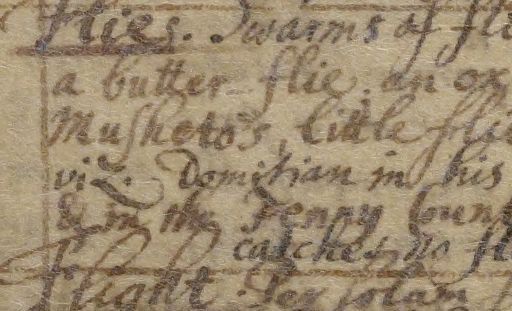 flies. Swarms of fli
a butter flie. an ox
Musketo's, little flie
viz. Domitian in his
& in the Penny
catches no fl
flight.